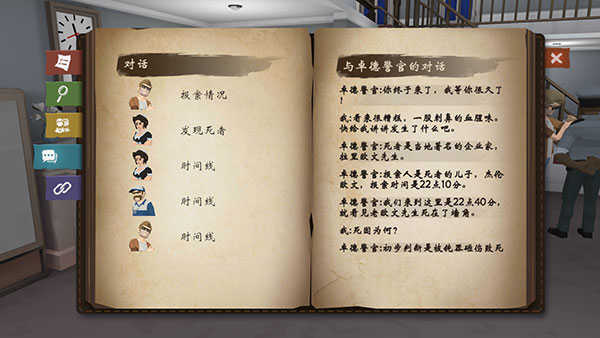 对话
报案情况
发现死者
时间线
时间线
时间线
与卓德警官的对话
卓德警官:你终于来了，我等你很久了
！
我:看来很糟糕，一股刺鼻的血腥味。
快给我讲讲发生了什么吧。
卓德警官:死者是当地著名的企业家，
拉里欧文先生。
卓德警官:报案人是死者的儿子，杰伦
欧文，报案时间是22点10分。
卓德警官:我们来到这里是22点40分，
就看见老欧文先生死在了墙角。
我:死因为何？
卓德警官:初步判断是被钝器碰伤致死